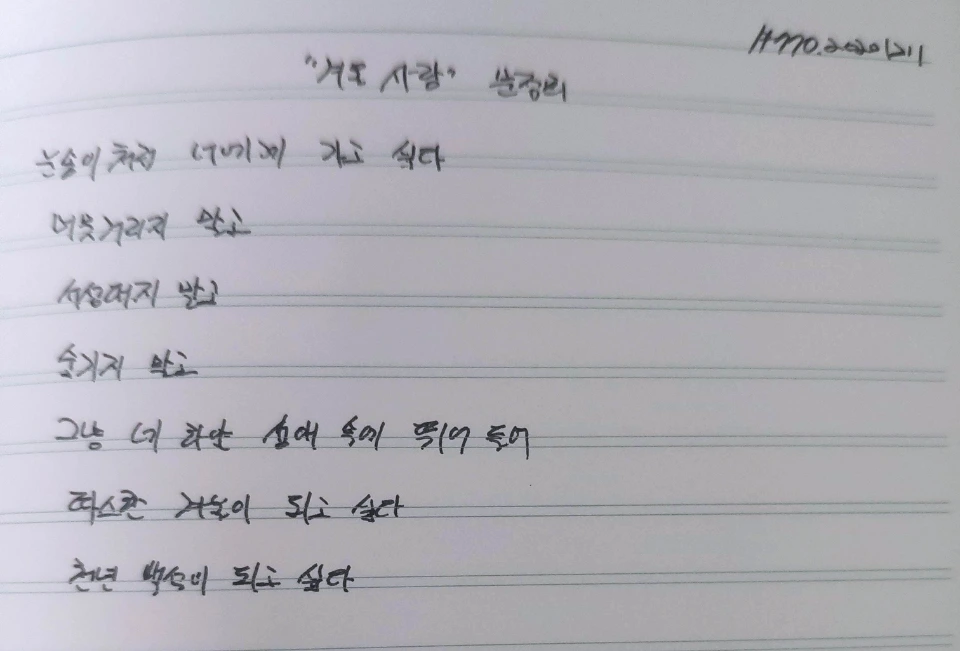 #770.20201211
"겨울 사랑" 문정희
눈송이처럼 너에게 가고 싶다
머뭇거리지 말고
서성대지 말고
숨기지 말고
그냥 네 하얀 생애 속에 뛰어 들어
따스한 겨울이 되고 싶다
천년 백설이 되고 싶다